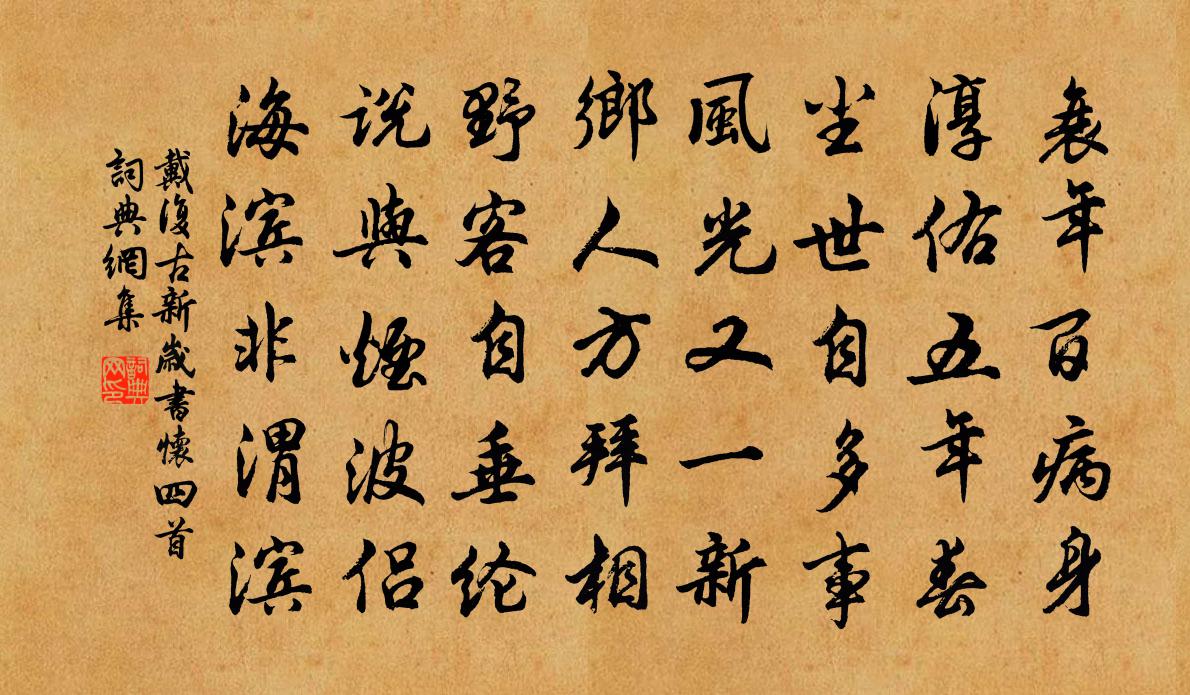 衰年百病身
淳佑五年春
尘世自多事
風光又一新
鄉人方拜相
野客自垂纶
说與煙波侣
海滨非渭滨
戴復古新歲書懷四首
詞典網集
詞典网印